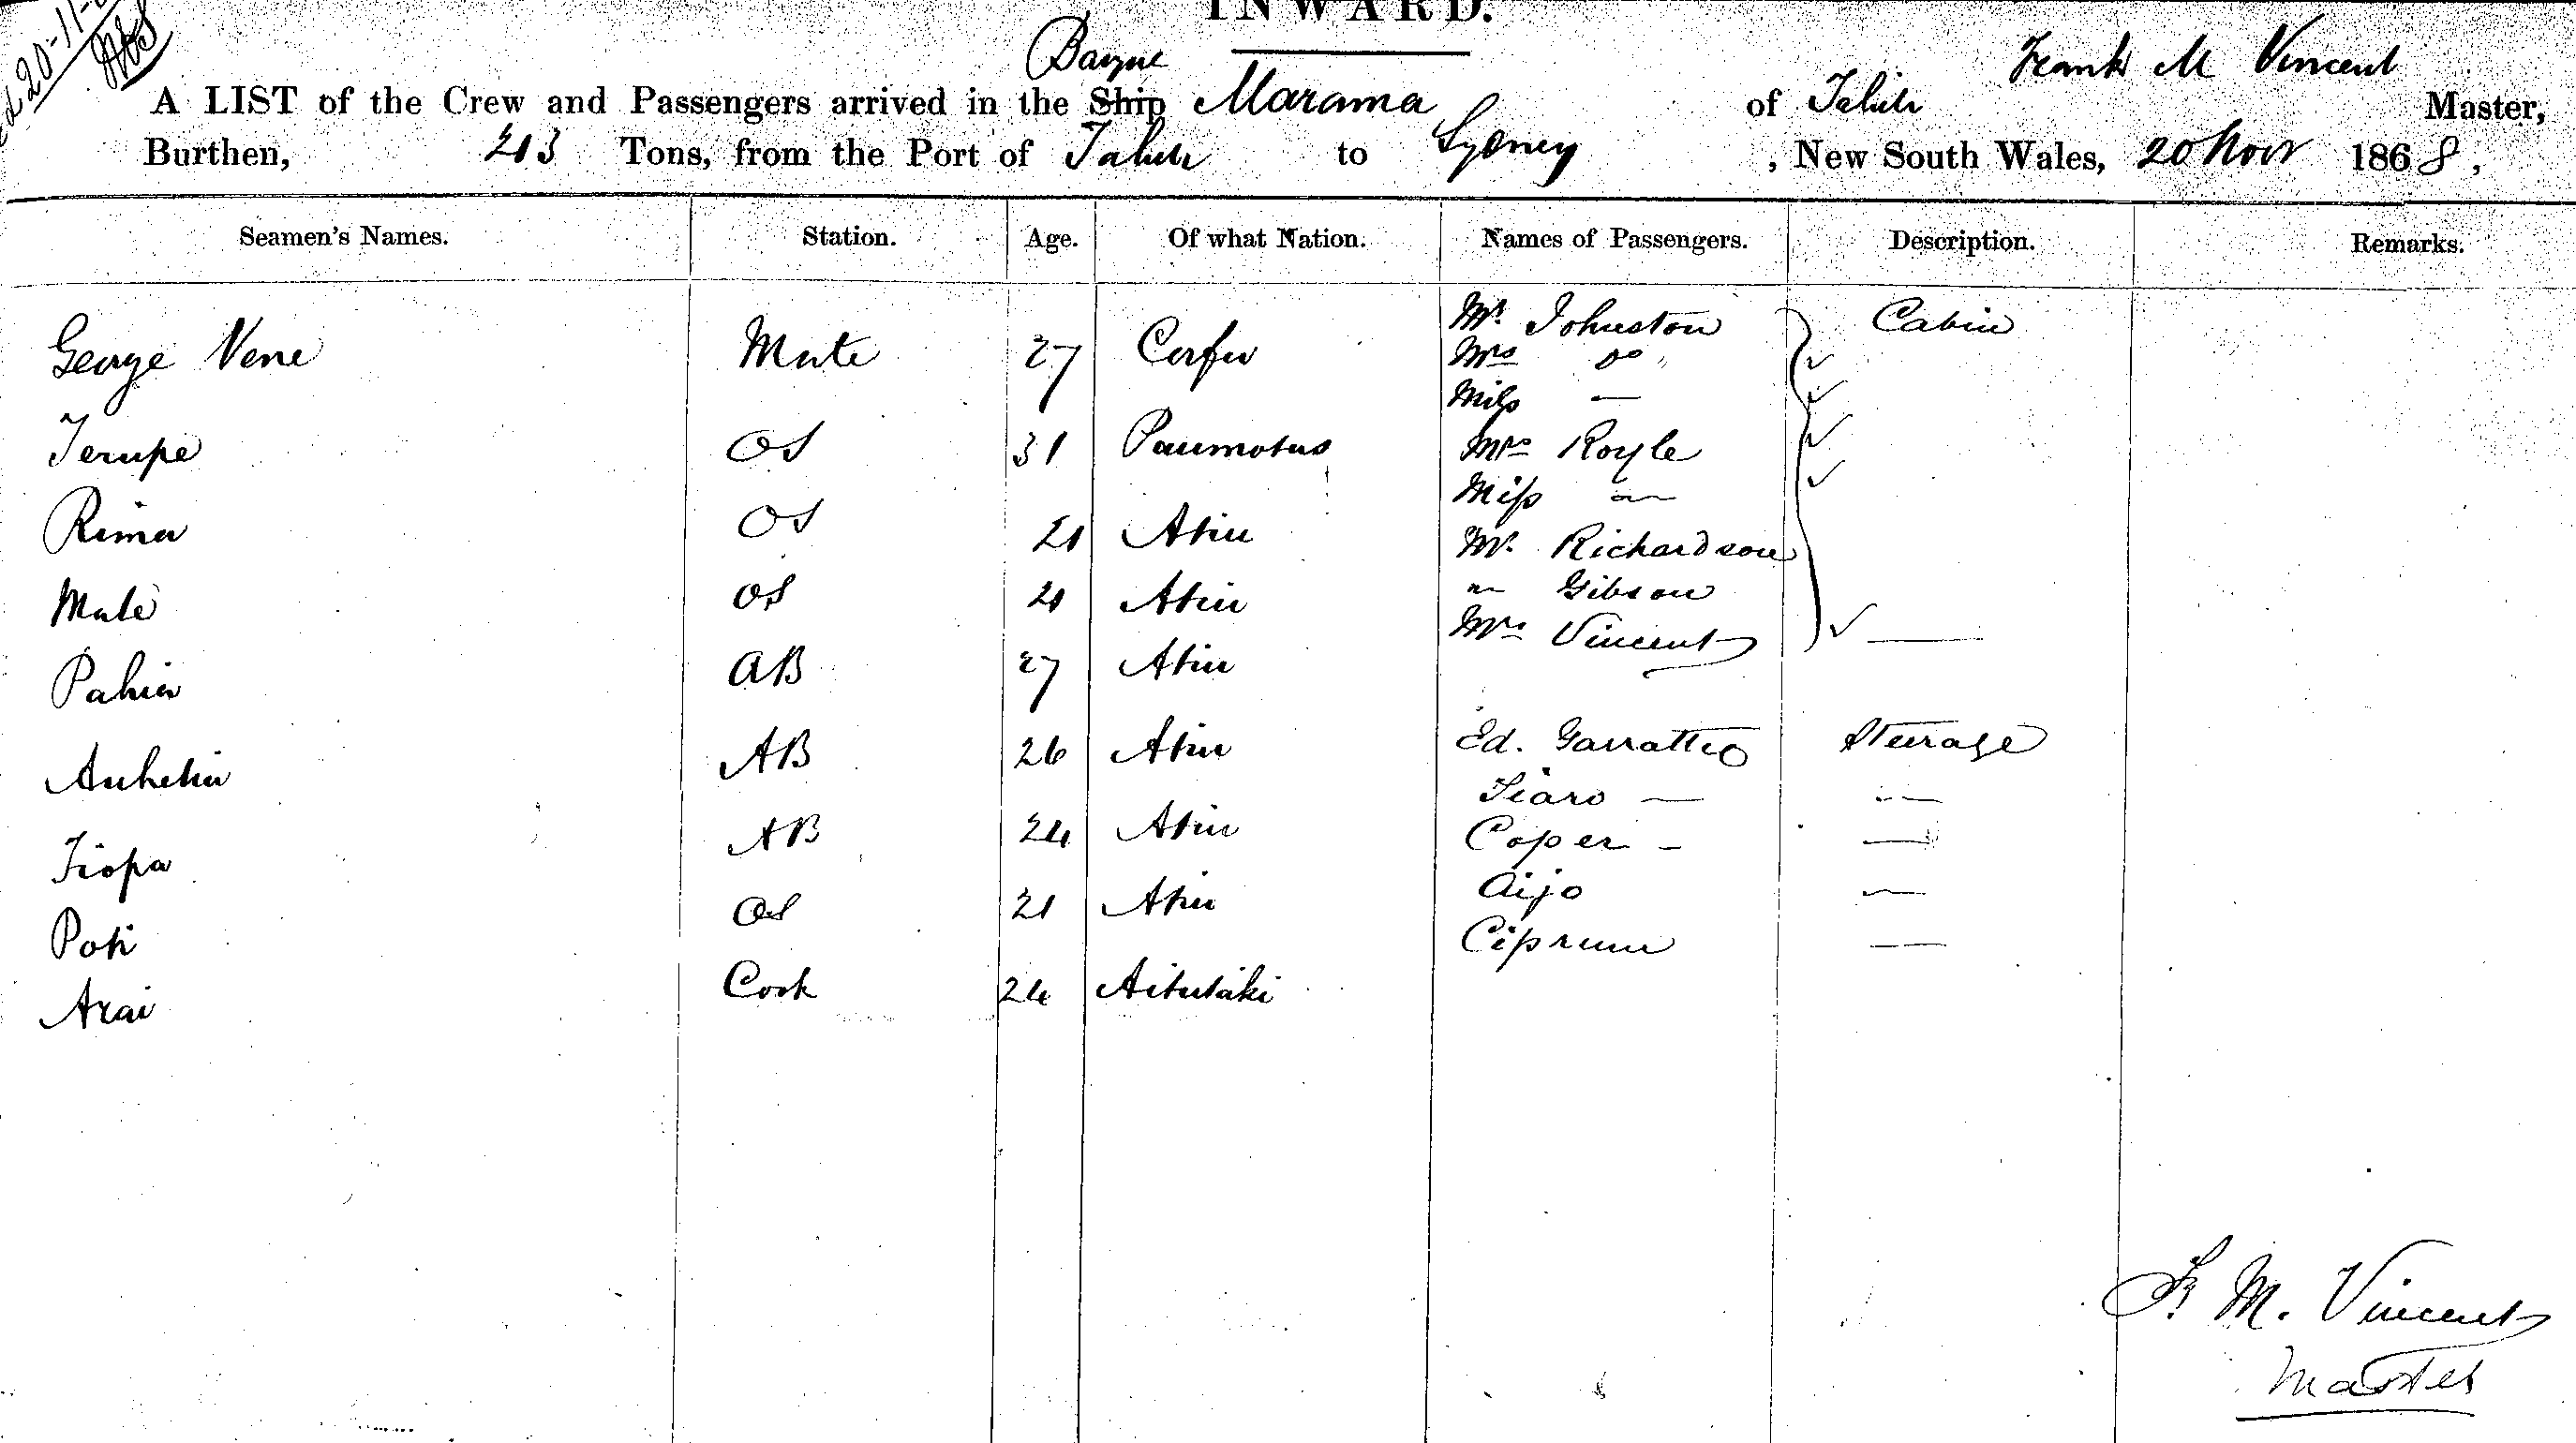 INWARD.
20-11-
Barque
Frank M Vincent
A LIST of the Crew and Passengers arrived in the Ship Marama of Tahiti Master,
Burthen, 213 Tons, from the Port of Tahiti to Sydney, New South Wales, 20 Novr 1868,
Seamen's Names. Station. Age. Of what Nation. Names of Passengers. Description. Remarks.
Mr. Johnston Cabin
George Vene Mate 27 Corfu
Mrs Do
Miss —
Terupe OS 31 Paumotus Mrs Royle
Miss —
Rima OS 21 Atiu Mr. Richardson
Mate OS 21 Atiu " Gibson
Mrs Vincent —
Pahia AB 27 Atiu
Auhetia AB 26 Atiu Ed. Garratt Steerage
Tiaro — —
Tiopa AB 24 Atiu Coper — —
Poti OS 21 Atiu Aijo —
Ciprum —
Arai Cook 24 Aitutaki
F. M. Vincent
Master